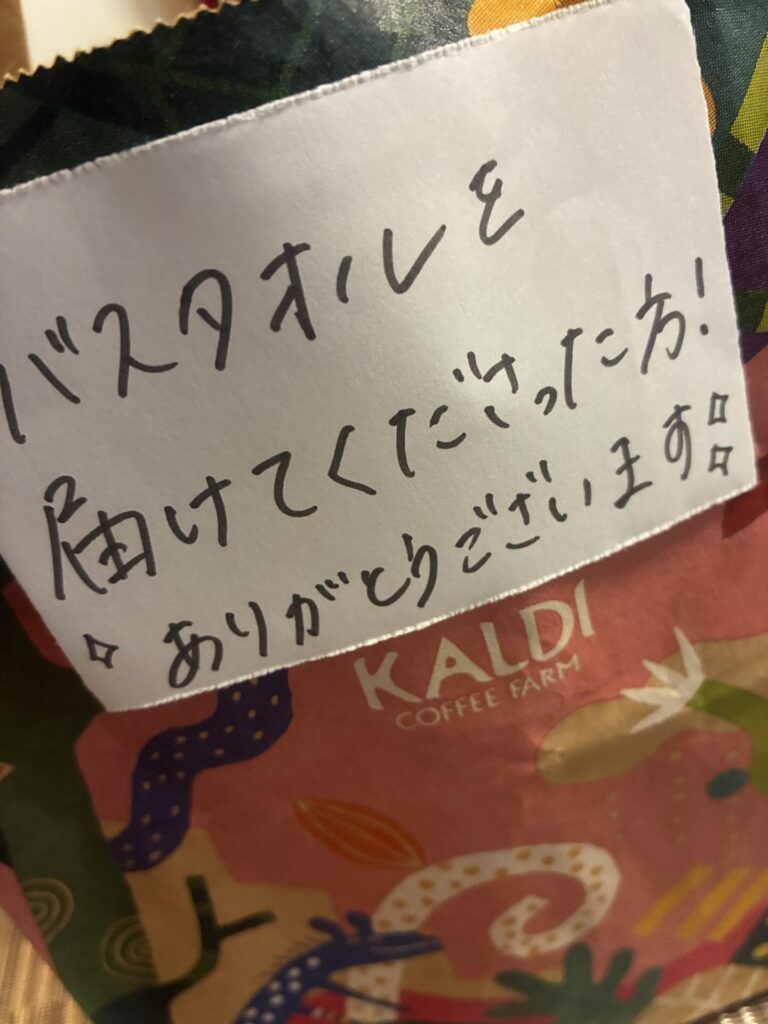 バスタオルを
届けてくださった方!
ありがとうございます!!
KALDI
COFFEE FARM